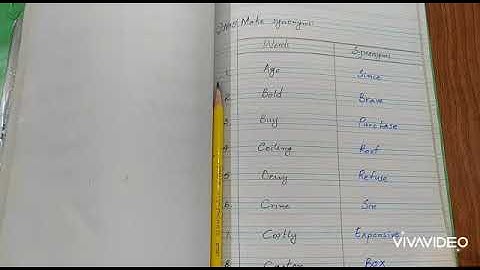 Make synonyms
Words Synonyms
1. Ago Since
2. Bold Brave
3. Buy Purchase
4. Ceiling Roof
5. Deny Refuse
6. Crime Sin
7. Costly Expensive
8. Box
VIVAVIDEO